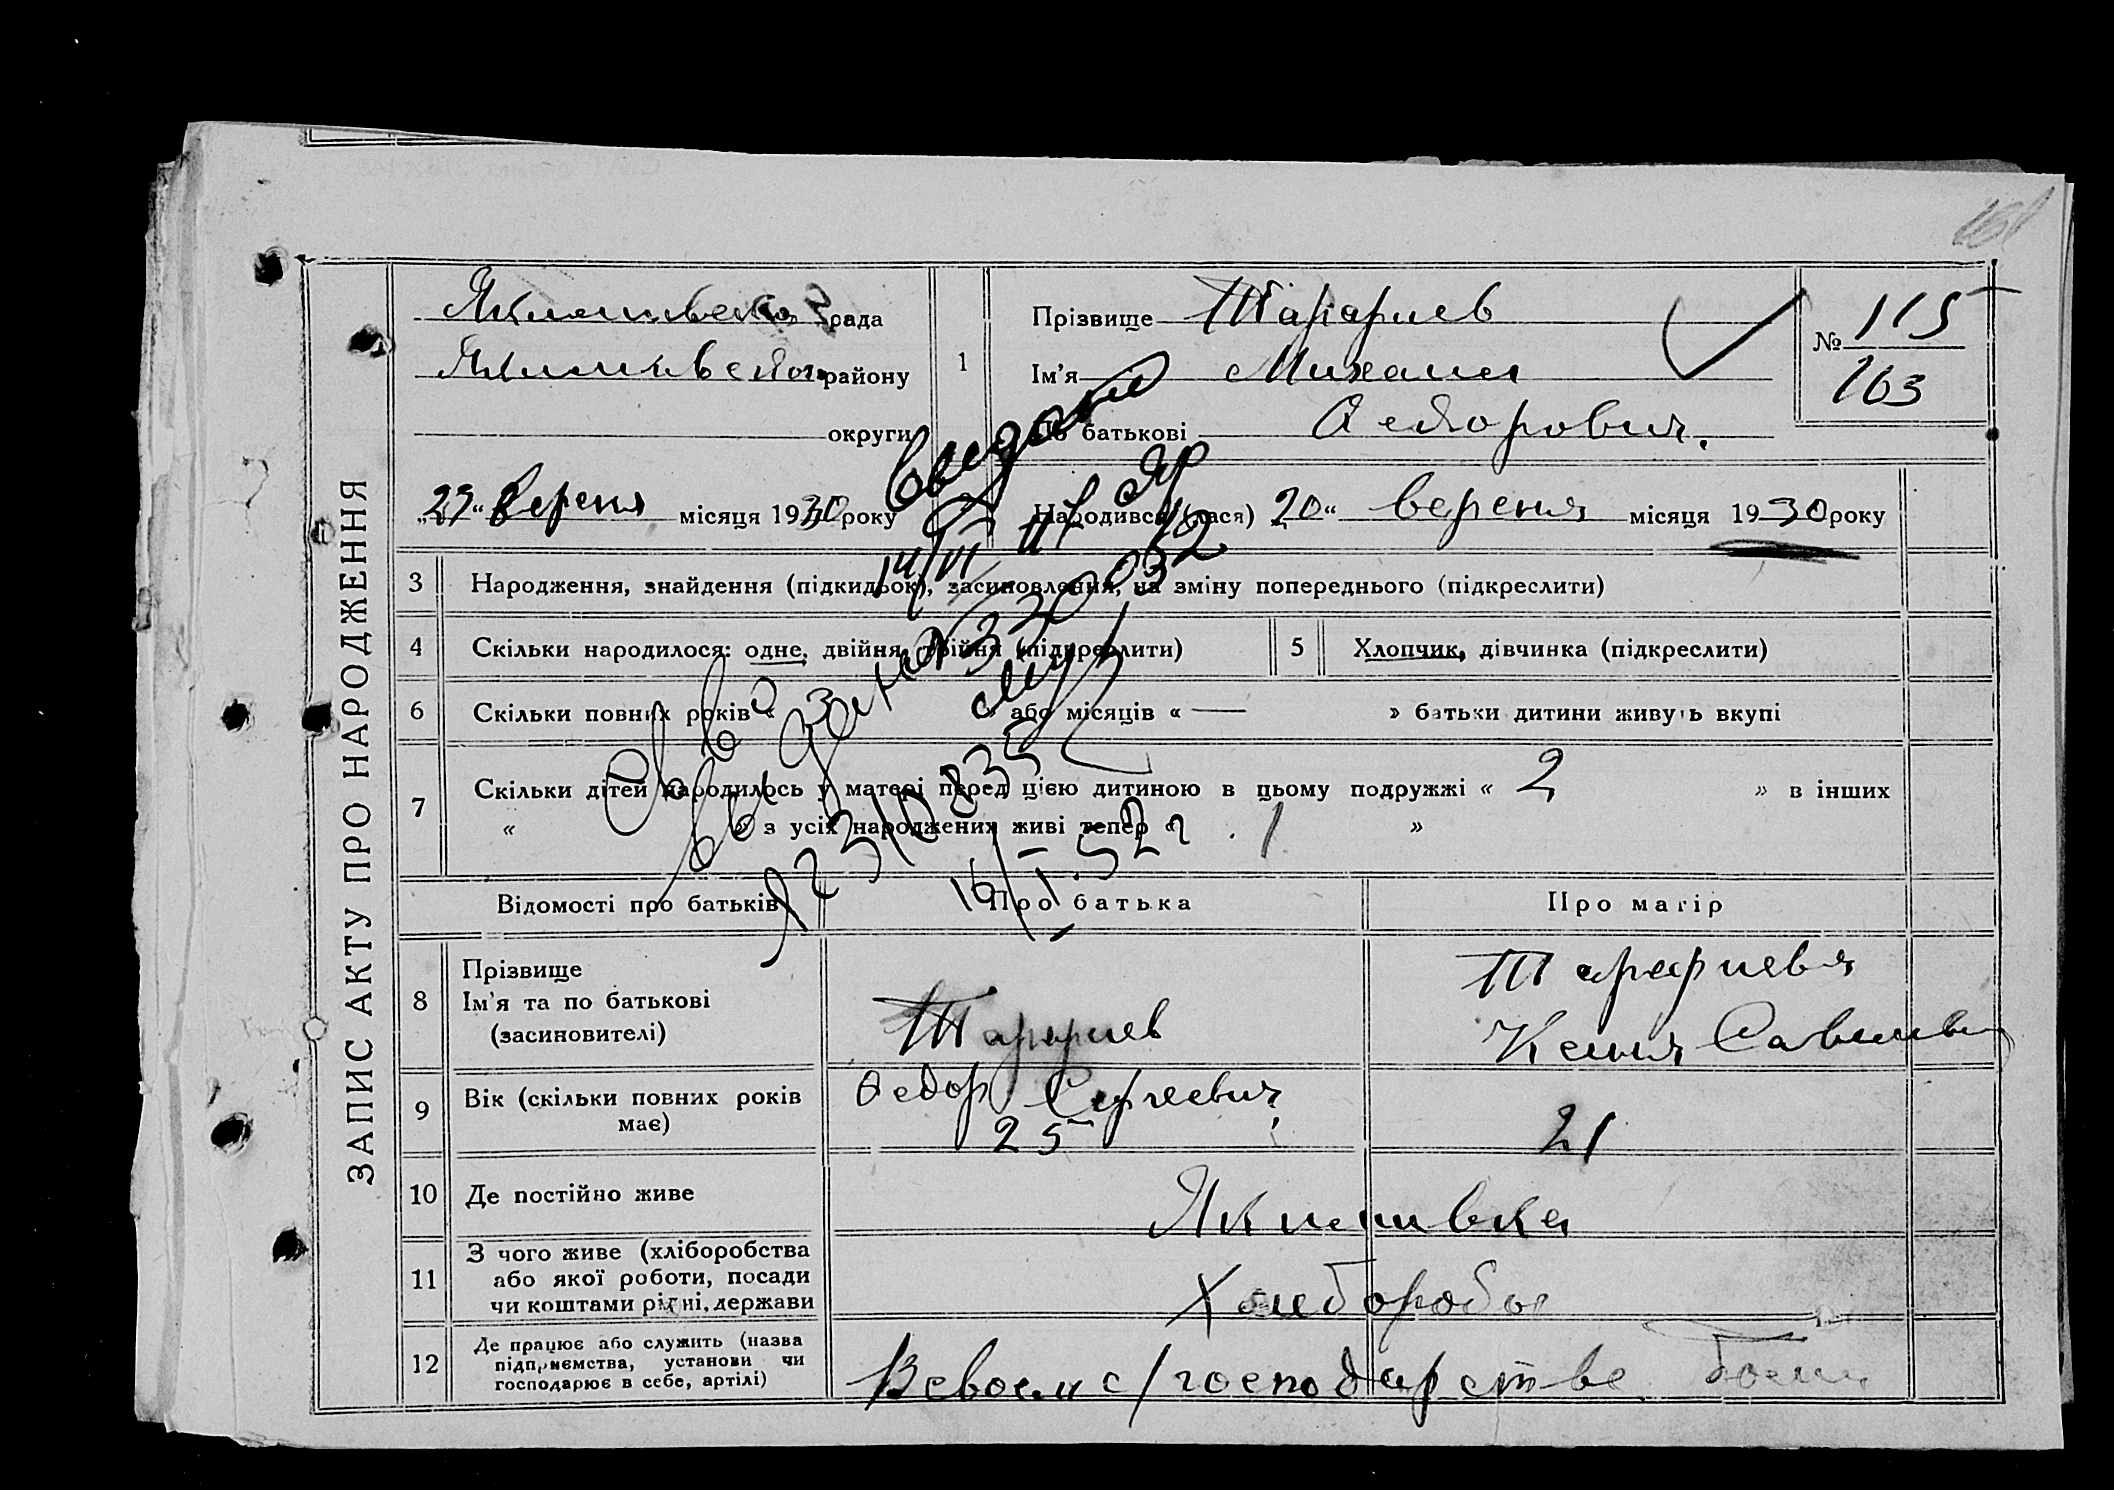 ЗАПИС АКТУ ПРО НАРОДЖЕННЯ
161
рада
району
округи
„27“ вереня місяця 1930 року
1
Прізвище Тарариев
Ім'я Михаил
По батькові Федорович.
№ 115
163
Народився (лася) 20“ вереня місяця 1930 року
3 Народження, знайдення (підкидьок), засиновлення, на зміну попереднього (підкреслити)
4 Скільки народилося: одне, двійня, трійня (підкреслити)
5 Хлопчик, дівчинка (підкреслити)
6 Скільки повних років « 3 » або місяців « — » батьки дитини живуть вкупі
7 Скільки дітей народилось у матері перед цією дитиною в цьому подружжі « 2 » в інших
« » з усіх народжених живі тепер « 1 »
16/I-52 г
Відомості про батьків
Про батька
Про матір
8 Прізвище
Ім'я та по батькові
(засиновителі)
Тарариев
Федор Сергеевич
Тарариева
Ксения
9 Вік (скільки повних років
має)
25
21
10 Де постійно живе
Якимивка
11 З чого живе (хліборобства
або якої роботи, посади
чи коштами рідні, держави
Хлиборобы
12 Де працює або служить (назва
підприємства, установи чи
господарює в себе, артілі)
В своем с/господарстве